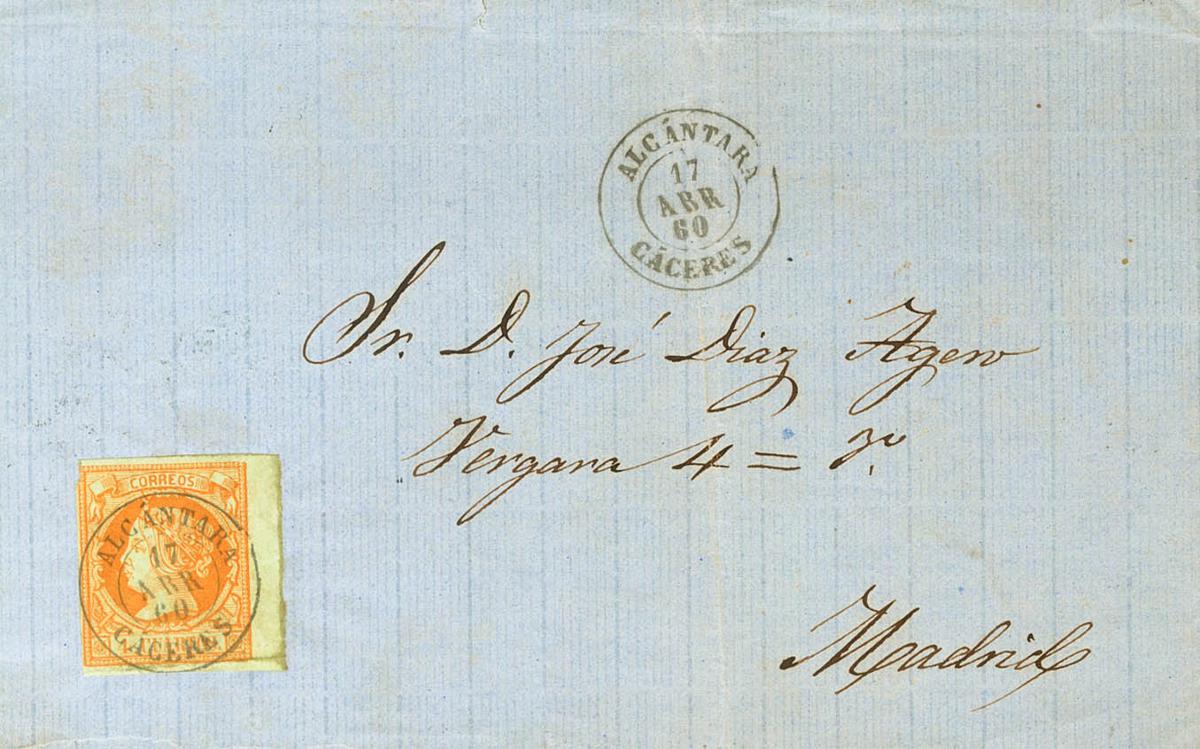 ALCÁNTARA
17
ABR
60
CÁCERES
Sr. D. José Diaz Agero
Vergara 4 = 3º.
Madrid
CORREOS
ALCÁNTARA
17
ABR
60
CÁCERES